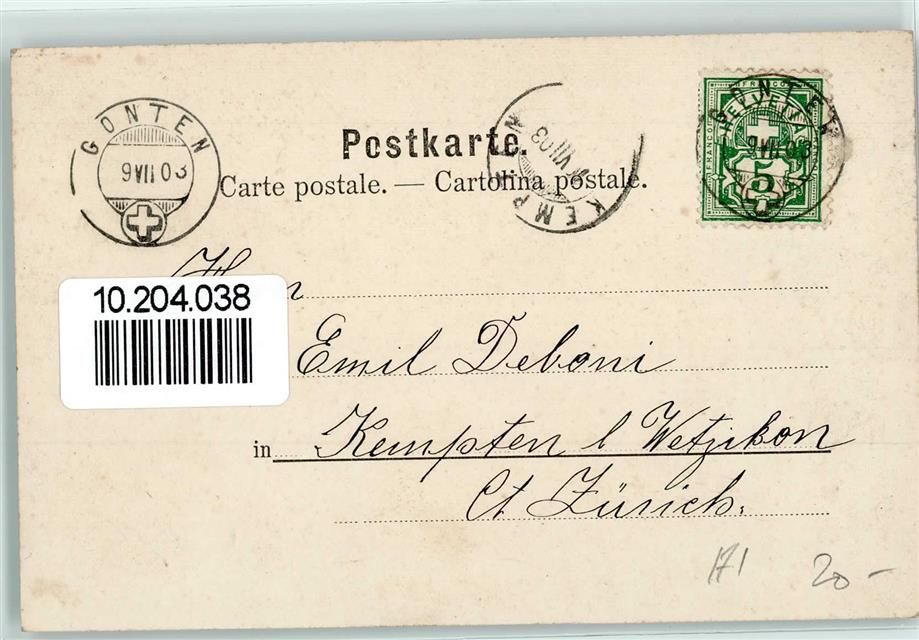 GONTEN
9 VII 03
Postkarte.
Carte postale. — Cartolina postale.
KEMPTEN
VII 03
FRANCO
HELVETIA
5
GONTEN
9 VII 03
10.204.038
Herrn
Emil Deboni
in Kempten b Wetzikon
Ct. Zürich.
171
20-